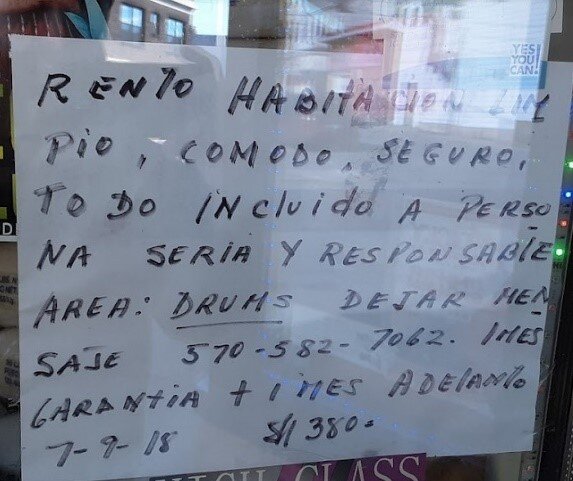 YES
YOU
CAN!
RENTO HABITACION LIM
PIO, COMODO, SEGURO,
TODO INCLUIDO A PERSO
NA SERIA Y RESPONSABLE
AREA: DRUMS DEJAR MEN
SAJE 570-582-7062. 1MES
GARANTIA + 1MES ADELANTO
7-9-18 $/380.
HIGH CLASS